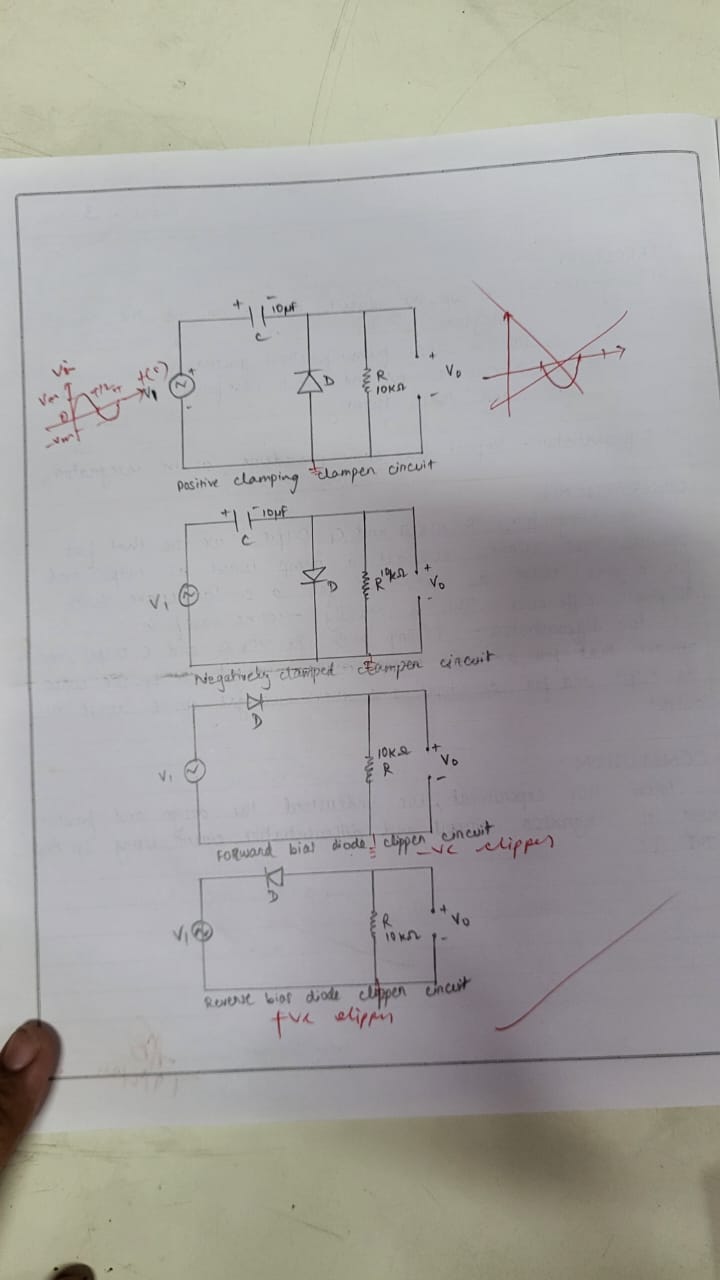 + - 10μf
C
Vi
Vm
0
-Vm
t(s)
V1
+
-
D
R
10KΩ
+
V0
-
Positive clamping clamper circuit
+ - 10μf
C
Vi
D
R 10kΩ
+
V0
-
Negatively clamped clamper circuit
D
Vi
10KΩ
R
+
V0
-
Forward bias diode clipper circuit
-ve clipper
D
Vi
R
10KΩ
+
V0
-
Reverse bias diode clipper circuit
+ve clipper